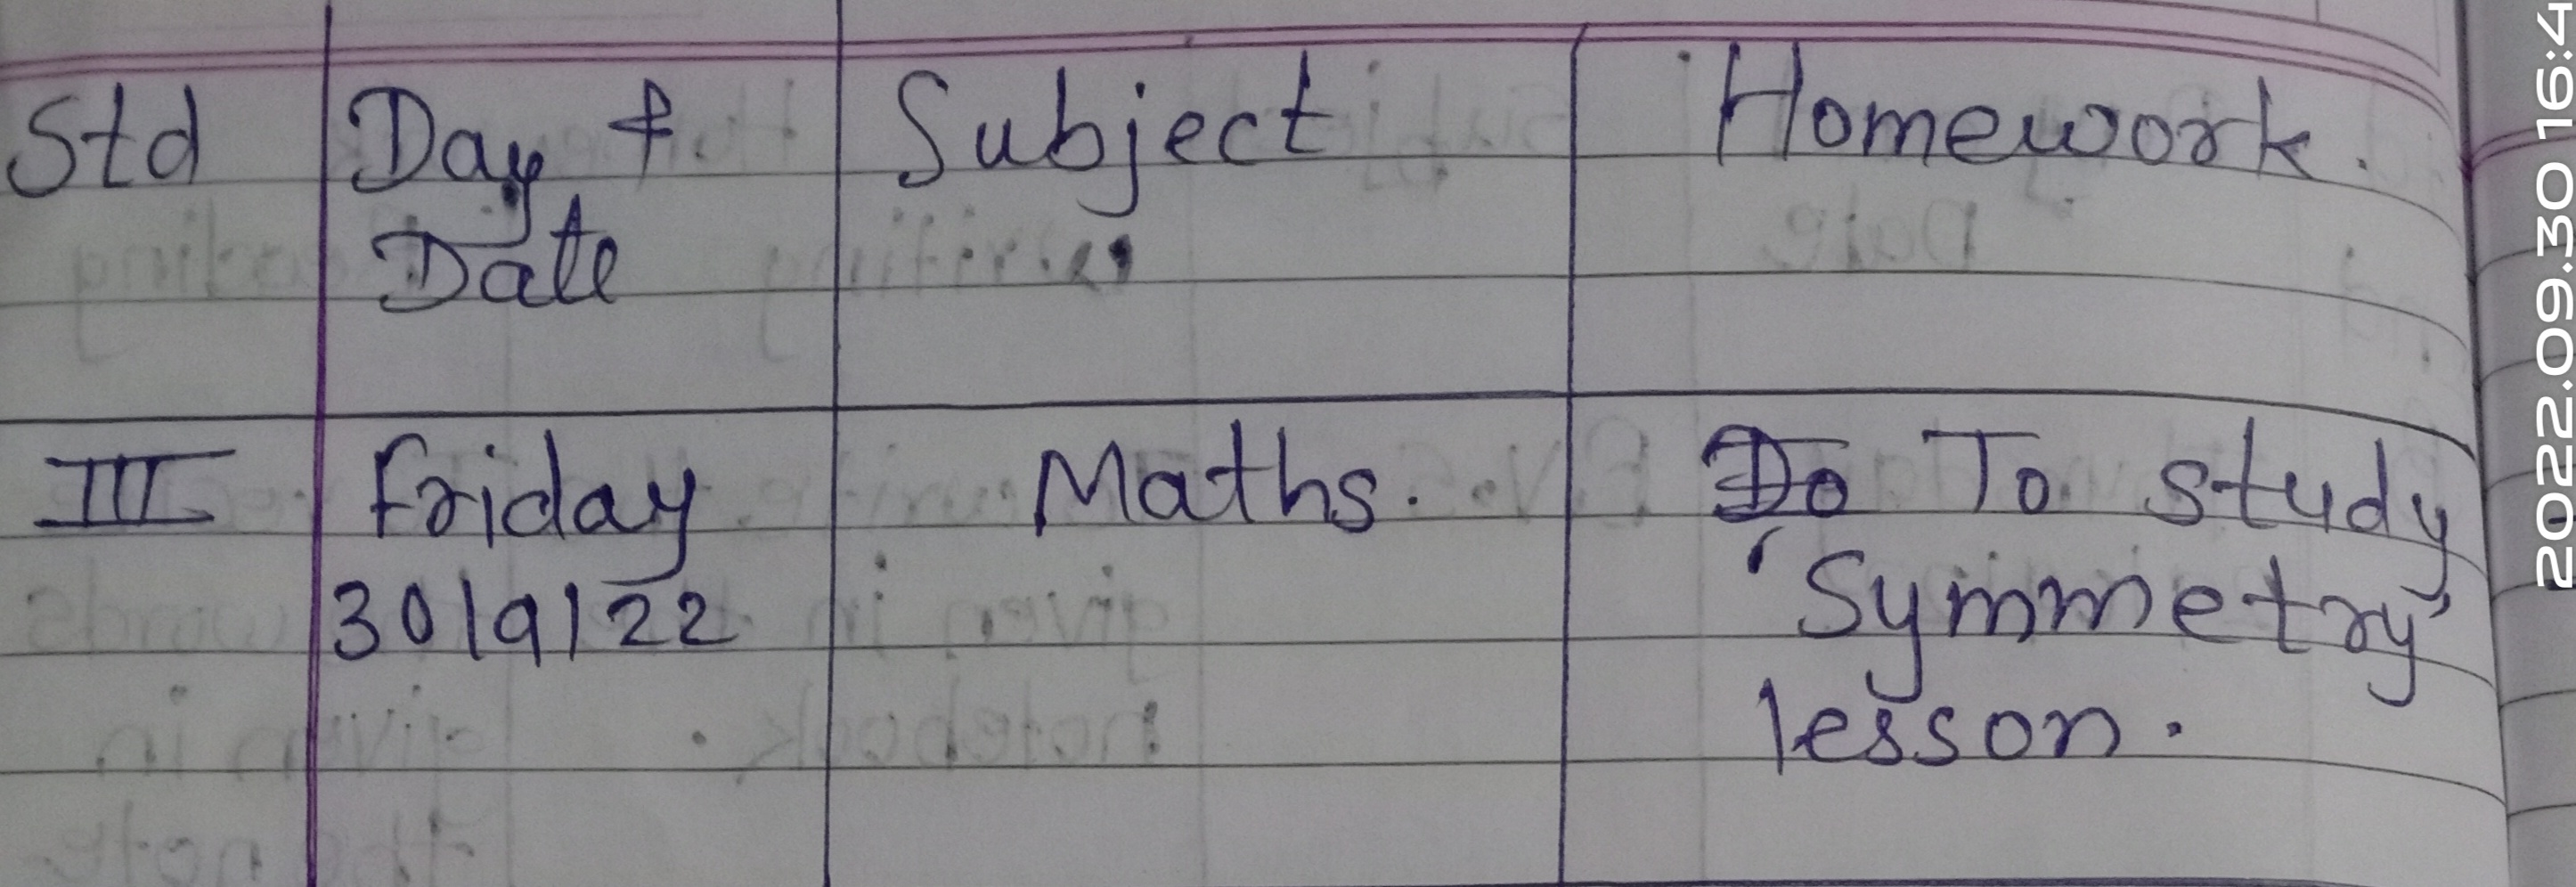 Std Day & Subject Homework.
Date
III Friday Maths. Do To study
30/9/22 'Symmetry'
lesson.
2022.09.30 16:4